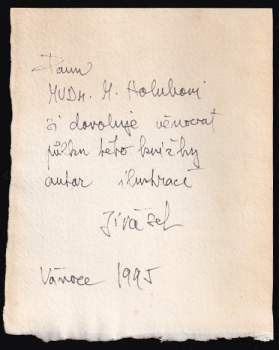 Panu
MUDr. M. Holubovi
si dovoluje věnovat
půlku této knížky
autor ilustrací
Jivášek
Vánoce 1995